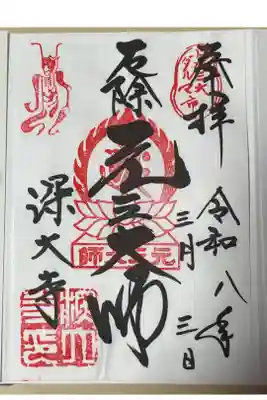 奉拝
令和八年
三月三日
厄除
元三大師
深大寺
元三大師